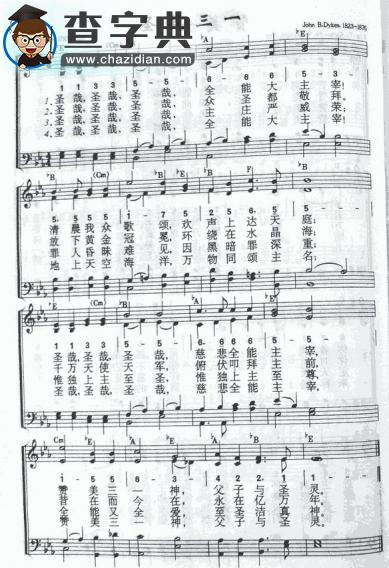 查字典
www.chazidian.com
三一
John B.Dykes, 1823-1876
1. 圣哉,圣哉,圣哉,全能大主宰!
2. 圣哉,圣哉,圣哉,众圣都敬拜;
3. 圣哉,圣哉,圣哉,主庄严威荣;
4. 圣哉,圣哉,圣哉,全能大主宰!
清晨我众歌颂,欢声上达天庭;
放下黄金冠冕,环绕在水晶海;
罪人昏昧难见,因黑暗罪深重;
地上天空海洋,万物同颂主名;
圣哉,圣哉,圣哉,慈悲全能主宰,
千万天使天军,俯伏叩拜主前,
惟独上主至圣,惟独上主至尊,
圣哉,圣哉,圣哉,慈悲全能主宰,
赞美三一神,父子与圣灵。
昔在而今在,永在亿万年。
全能又全爱,至圣洁真神。
赞美三一神,父子与圣灵。